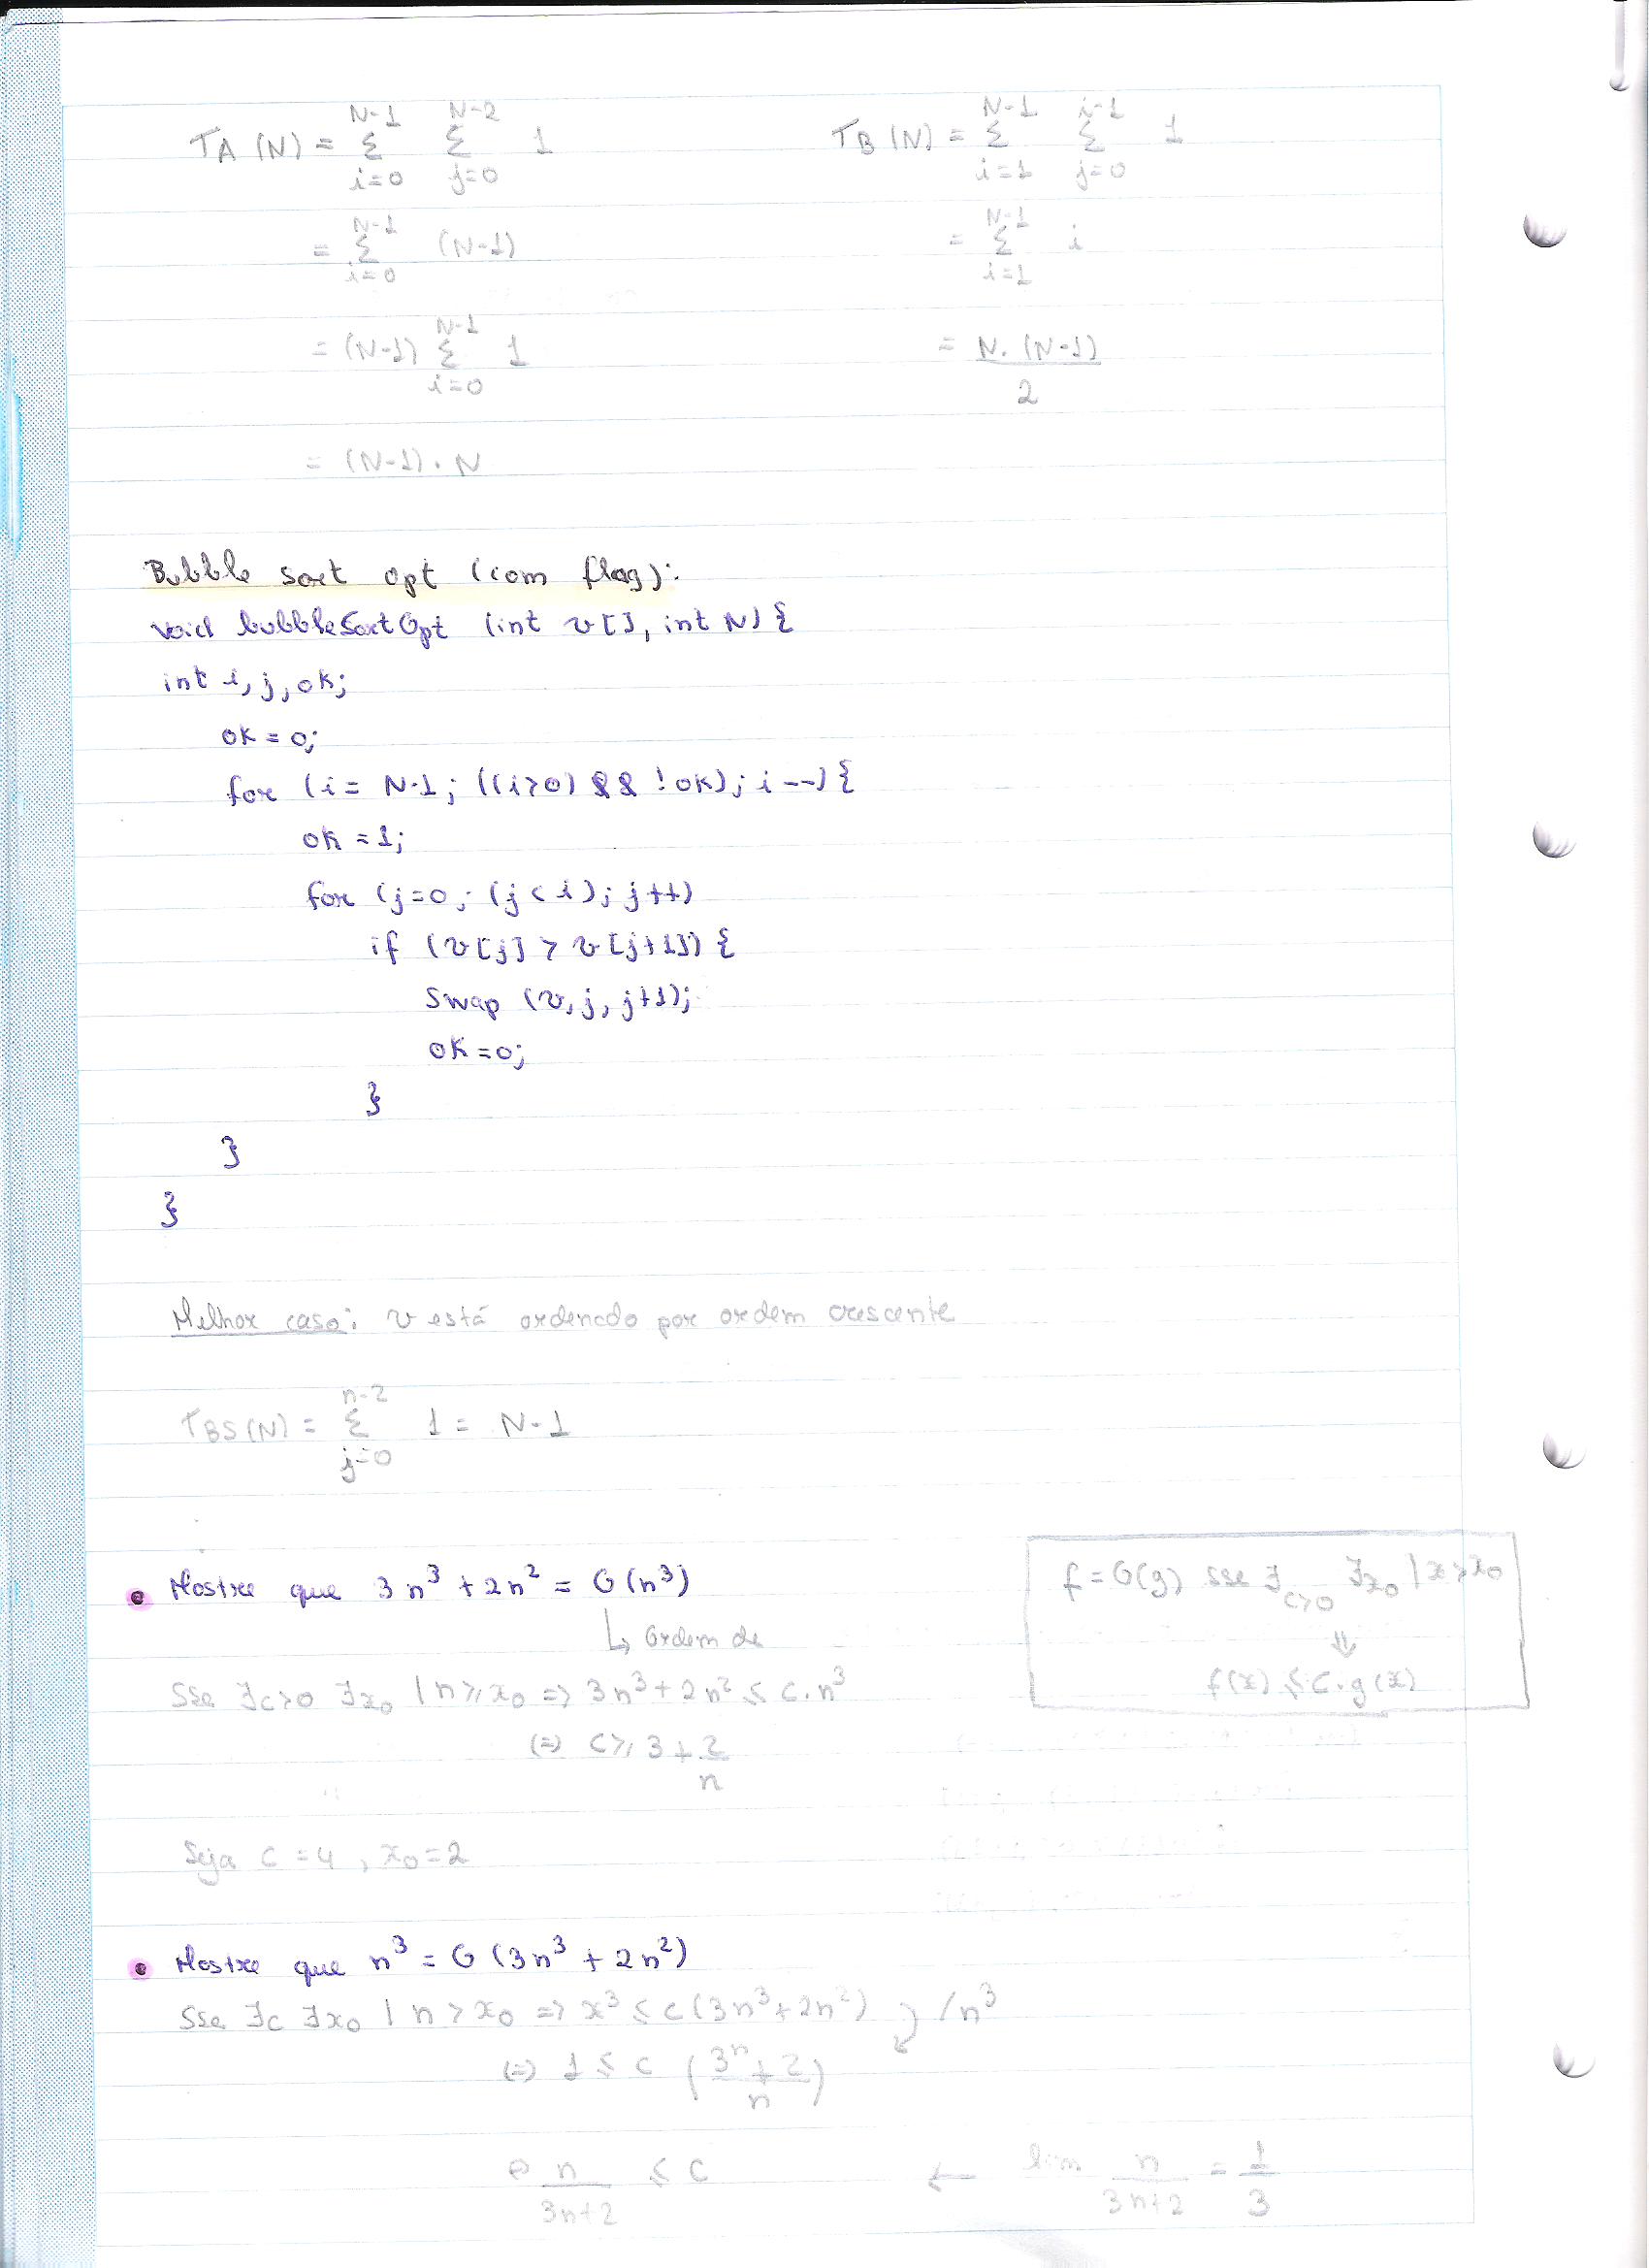 TA (N) = N-1 Σ i=0 N-2 Σ j=0 1
= N-1 Σ i=0 (N-1)
= (N-1) N-1 Σ i=0 1
= (N-1) . N
TB (N) = N-1 Σ i=1 i-1 Σ j=0 1
= N-1 Σ i=1 i
= N. (N-1) / 2
Bubble sort opt (com flag):
void bubbleSortOpt (int v[], int N) {
int i, j, ok;
ok = 0;
for (i = N-1; ((i>0) && !ok); i--) {
ok = 1;
for (j=0; (j<i); j++)
if (v[j] > v[j+1]) {
swap (v, j, j+1);
ok = 0;
}
}
}
Melhor caso: v está ordenado por ordem crescente
TBS (N) = n-2 Σ j=0 1 = N-1
• Mostre que 3n³ + 2n² = O(n³)
↳ Ordem de
Sse ∃c>0 ∃x₀ | n ⩾ x₀ => 3n³ + 2n² ≤ c.n³
(=) c ⩾ 3 + 2/n
Seja c = 4 , x₀ = 2
f = O(g) sse ∃c>0 ∃x₀ | x ⩾ x₀
⇓
f(x) ≤ c.g(x)
• Mostre que n³ = O (3n³ + 2n²)
Sse ∃c ∃x₀ | n > x₀ => x³ ≤ c (3n³ + 2n²) /n³
(=) 1 ≤ c (3n + 2 / n)
n / 3n+2 ≤ c ← lim n / 3n+2 = 1/3